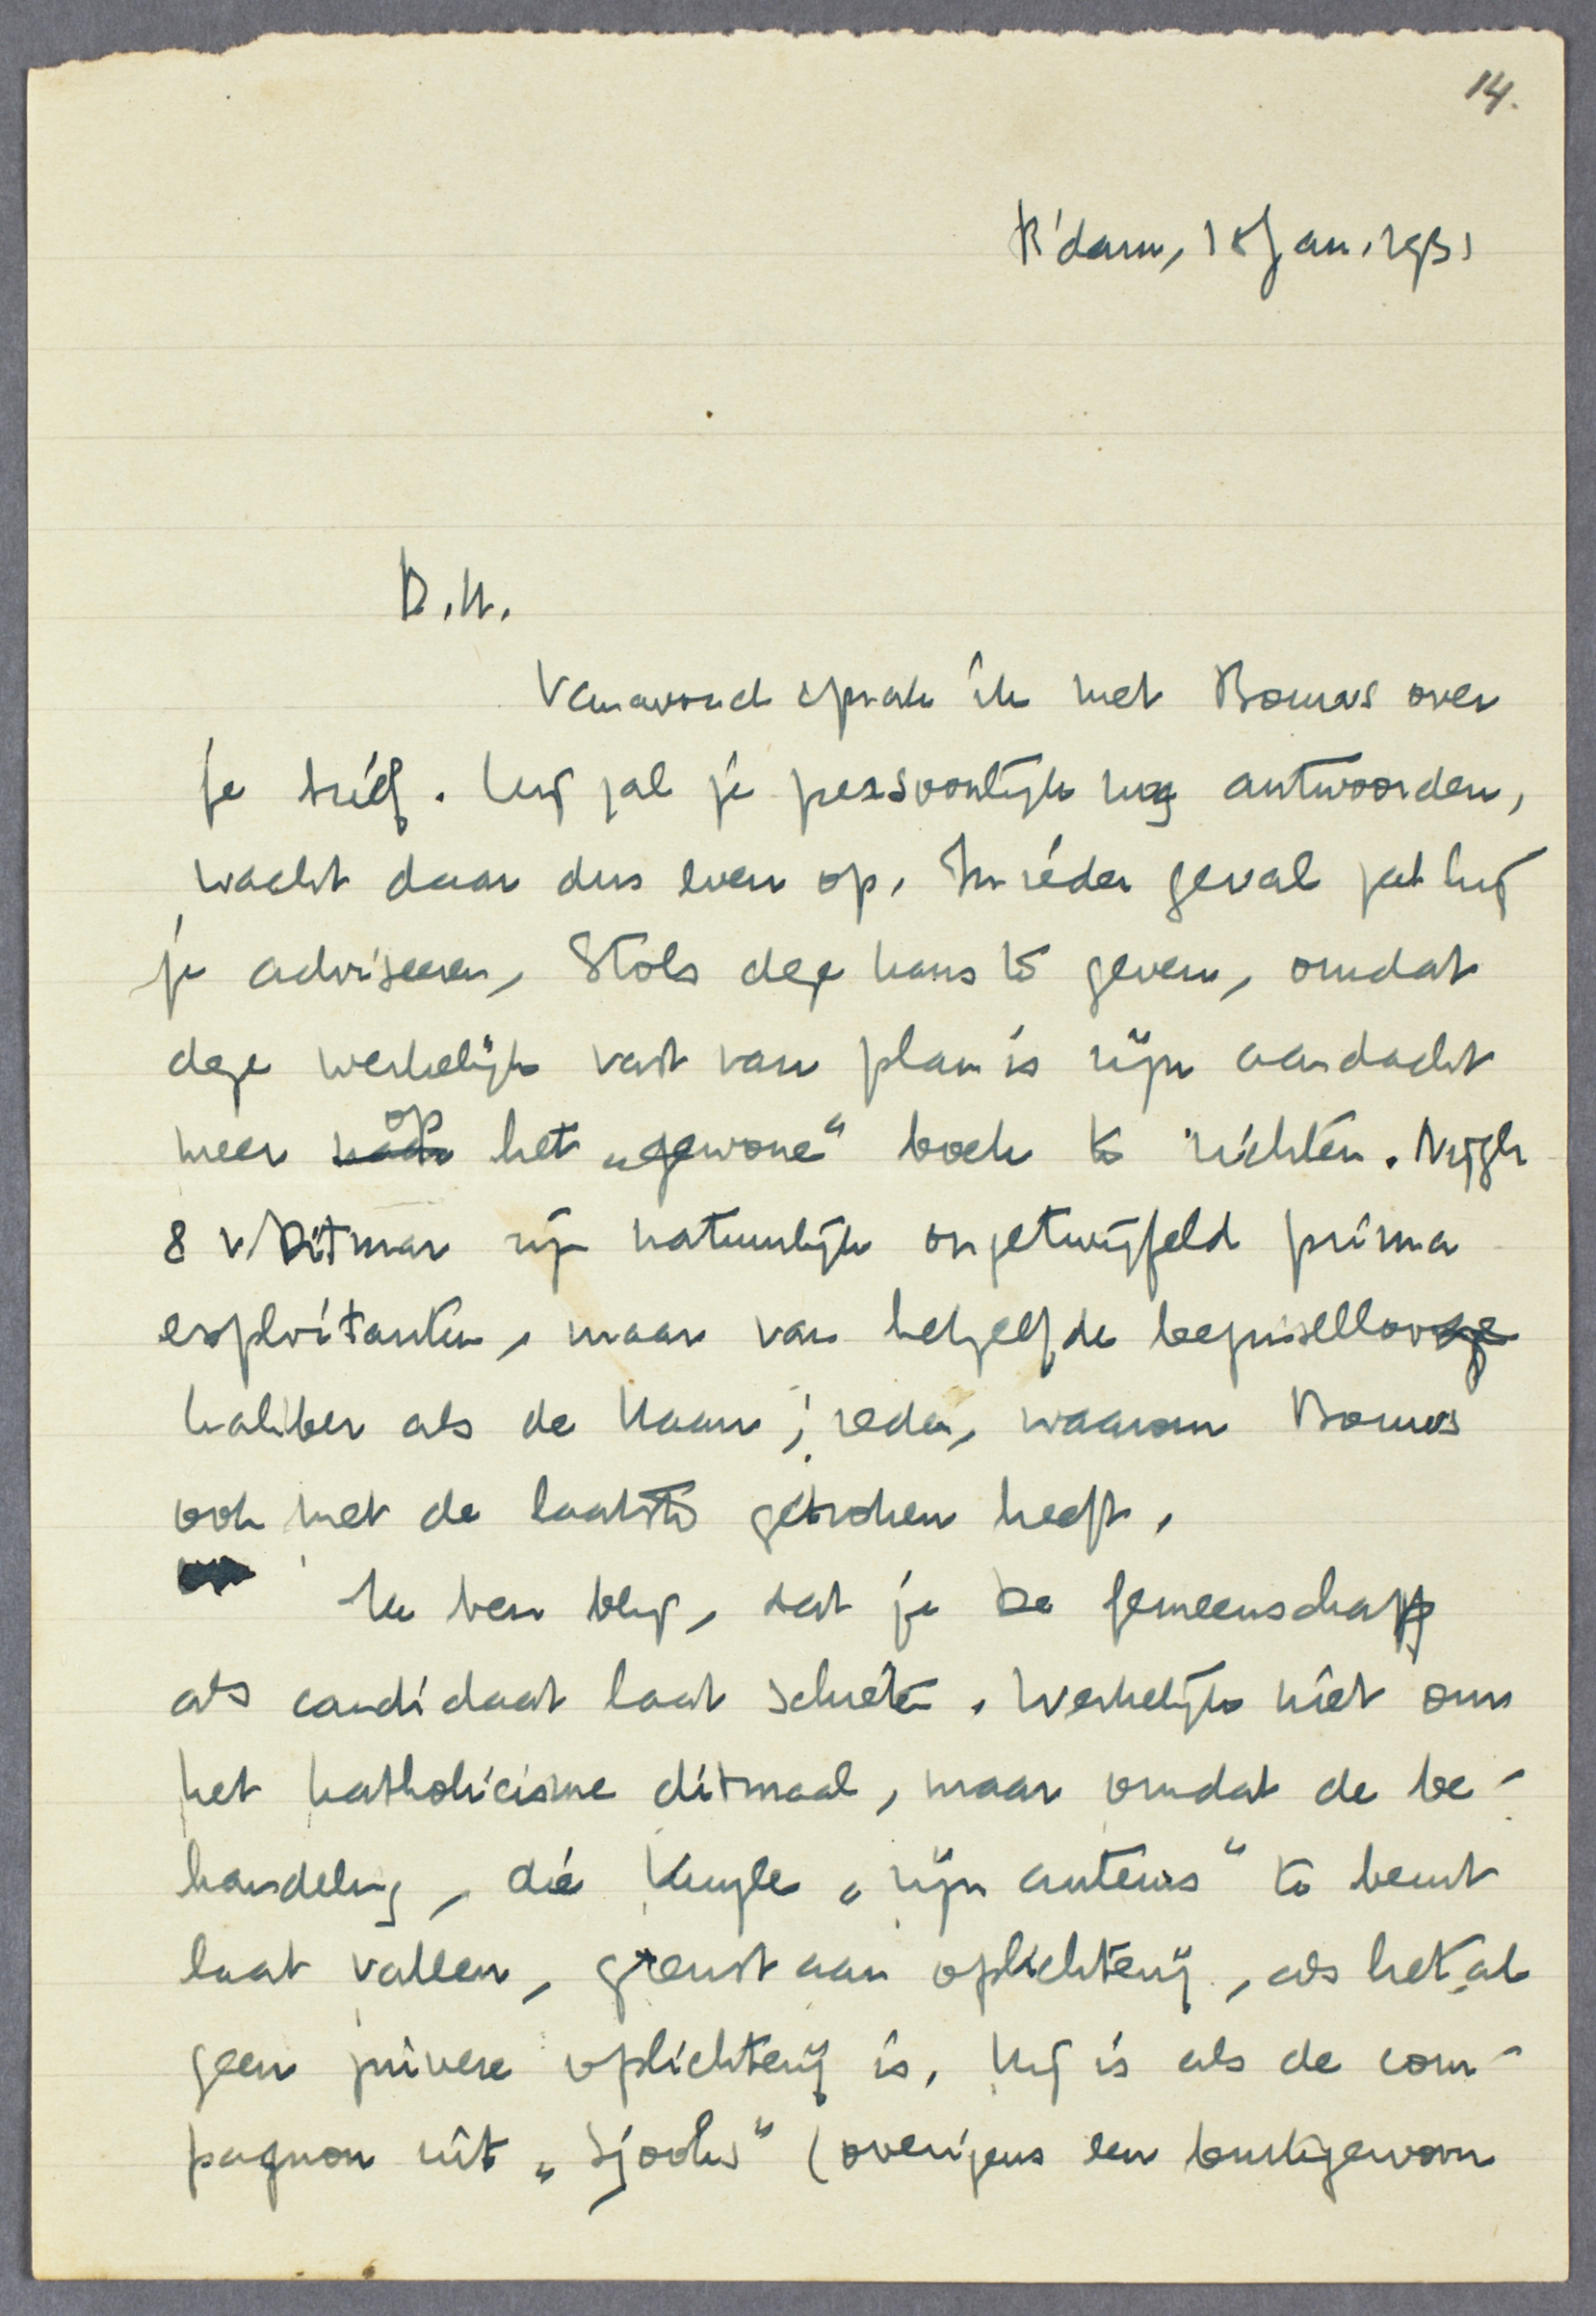 14.
R'dam, 18 Jan. 1931
D.H.
Vanavond sprak ik met Bouws over
je brief. Hij zal je persoonlijk nog antwoorden,
wacht daar dus even op. In ieder geval zal hij
je adviseeren, Stols deze kans te geven, omdat
deze werkelijk vast van plan is zijn aandacht
meer naar op het „gewone" boek te richten. Nijgh
& v Ditmar zijn natuurlijk ongetwijfeld prima
exploitanten, maar van hetzelfde beginselloo
kaliber als de Haan; reden, waarom Bouws
ook met de laatste gebroken heeft.
Ik ben blij, dat je De Gemeenschap
als candidaat laat schieten. Werkelijk niet om
het katholicisme ditmaal, maar omdat de be-
handeling, die Kuyle „zijn auteurs" te beurt
laat vallen, grenst aan oplichterij, als het al
geen zuivere oplichterij is. Hij is als de com-
pagnon uit „Sjooks" (overigens een